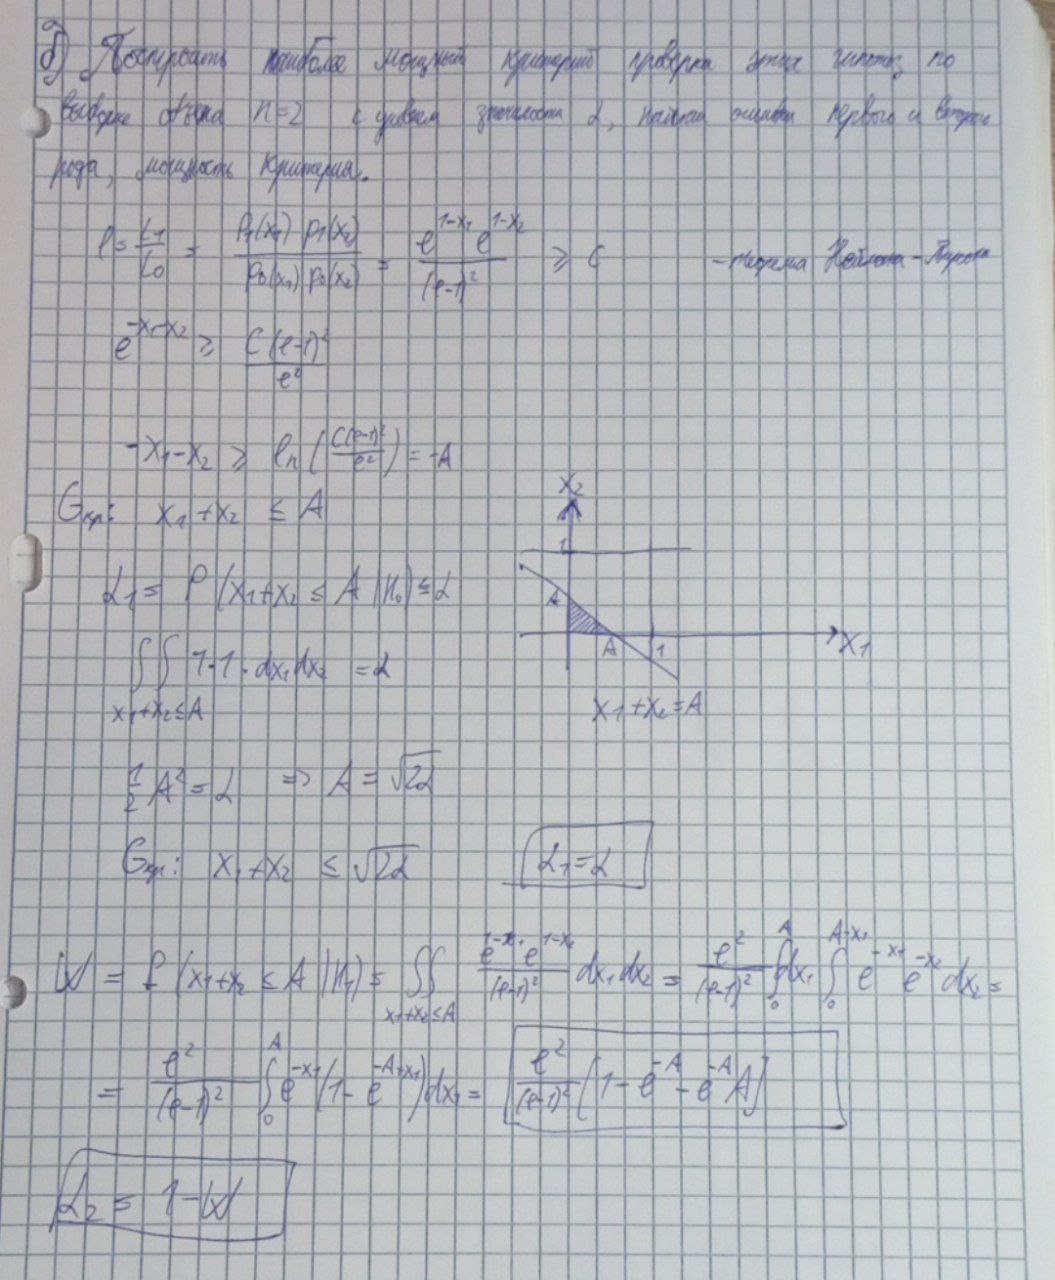 б) Построить наиболее мощный критерий проверки этих гипотез по
выборке объёма n=2 с уровнем значимости α, найти ошибки первого и второго
рода, мощность критерия.
l = L₁/L₀ = p₁(x₁) p₁(x₂) / p₀(x₁) p₀(x₂) = e^{1-x₁} e^{1-x₂} / (e-1)² ≥ C - теорема Неймана-Пирсона
e^{-x₁-x₂} ≥ C(e-1)² / e²
-x₁-x₂ ≥ ln(C(e-1)² / e²) = -A
Gкр: x₁+x₂ ≤ A
x₂
1
A
A
1
x₁
x₁+x₂=A
α₁ = P(x₁+x₂ ≤ A | H₀) ≤ α
∬_{x₁+x₂≤A} 1·1·dx₁dx₂ = α
1/2 A² = α => A = √2α
Gкр: x₁+x₂ ≤ √2α
α₁=α
W = P(x₁+x₂ ≤ A | H₁) = ∬_{x₁+x₂≤A} e^{1-x₁} e^{1-x₂} / (e-1)² dx₁dx₂ = e² / (e-1)² ∫₀^A dx₁ ∫₀^{A-x₁} e^{-x₁} e^{-x₂} dx₂ =
= e² / (e-1)² ∫₀^A e^{-x₁} (1-e^{-A+x₁}) dx₁ = e² / (e-1)² [1-e^{-A}-e^{-A}A]
α₂ = 1-W